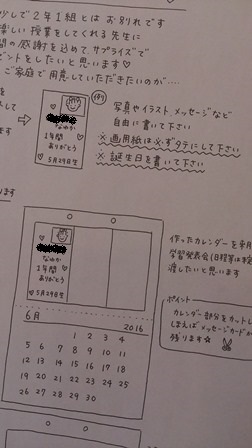 少しで2年1組とは お別れです
楽しい授業をしてくれる先生に
間の感謝を込めて、サプライズで
ゼントをしたいと思います♡
ご家庭で用意していただきたいのが‥‥
例
写真やイラスト、メッセージなど
自由に書いて下さい
※画用紙は必ずタテにして下さい
※誕生日を書いて下さい
なゆか
1年間
ありがとう
♡5月29日生
ります
なゆか
1年間
ありがとう
♡5月29日生
作ったカレンダーを
学習発表会(日程等は
渡したいと思います
6月
2016
1 2 3 4
5 6 7 8 9 10 11
12 13 14 15 16 17 18
19 20 21 22 23 24 25
26 27 28 29 30
ポイント
カレンダー部分をカットし
しまえばメッセージカードが
残ります☆